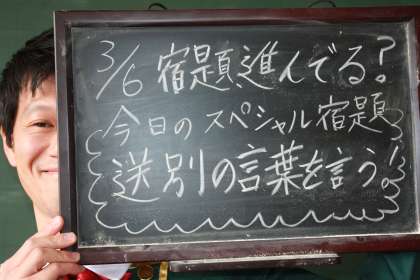 3/6 宿題、進んでる?
今日のスペシャル宿題
送別の言葉を言う!